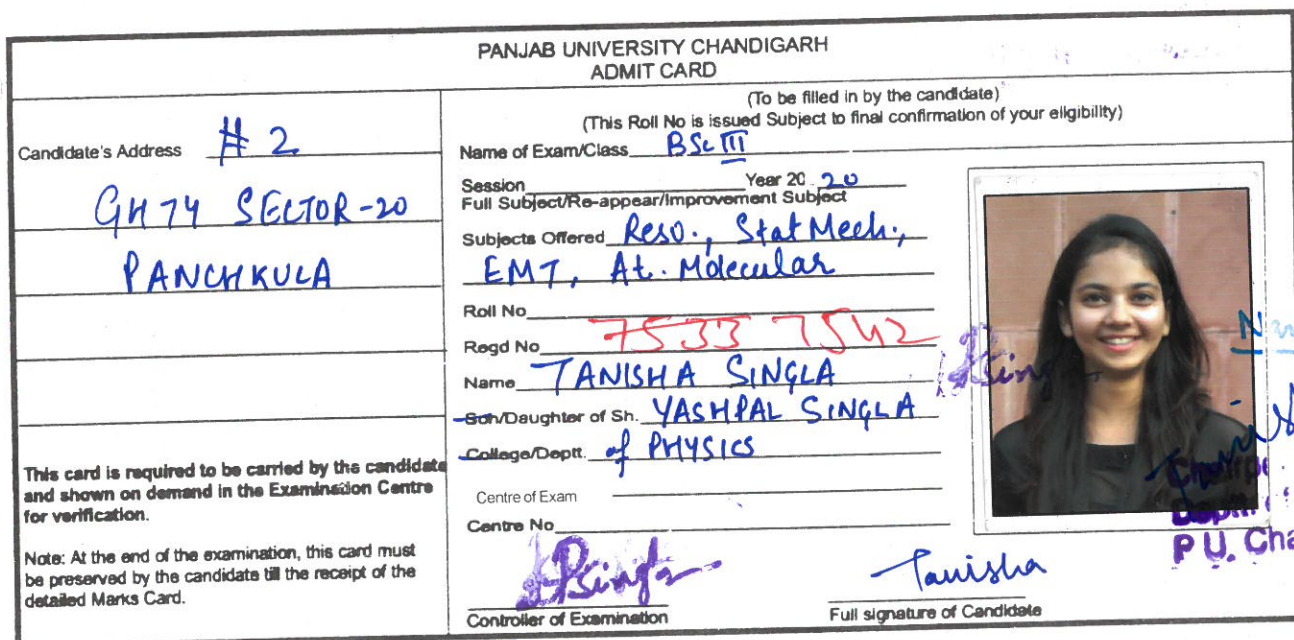 PANJAB UNIVERSITY CHANDIGARH
ADMIT CARD
Candidate's Address # 2
GH 74 SECTOR-20
PANCHKULA
This card is required to be carried by the candidate
and shown on demand in the Examination Centre
for verification.
Note: At the end of the examination, this card must
be preserved by the candidate till the receipt of the
detailed Marks Card.
(To be filled in by the candidate)
(This Roll No is issued Subject to final confirmation of your eligibility)
Name of Exam/Class BSc III
Session Year 20 20
Full Subject/Re-appear/Improvement Subject
Subjects Offered Reso., Stat Mech.,
EMT, At. Molecular
Roll No
Regd No 7533 7542
Name TANISHA SINGLA
Son/Daughter of Sh. YASHPAL SINGLA
College/Deptt. of PHYSICS
Centre of Exam
Centre No
Controller of Examination
Tanisha
Full signature of Candidate
P U. Cha